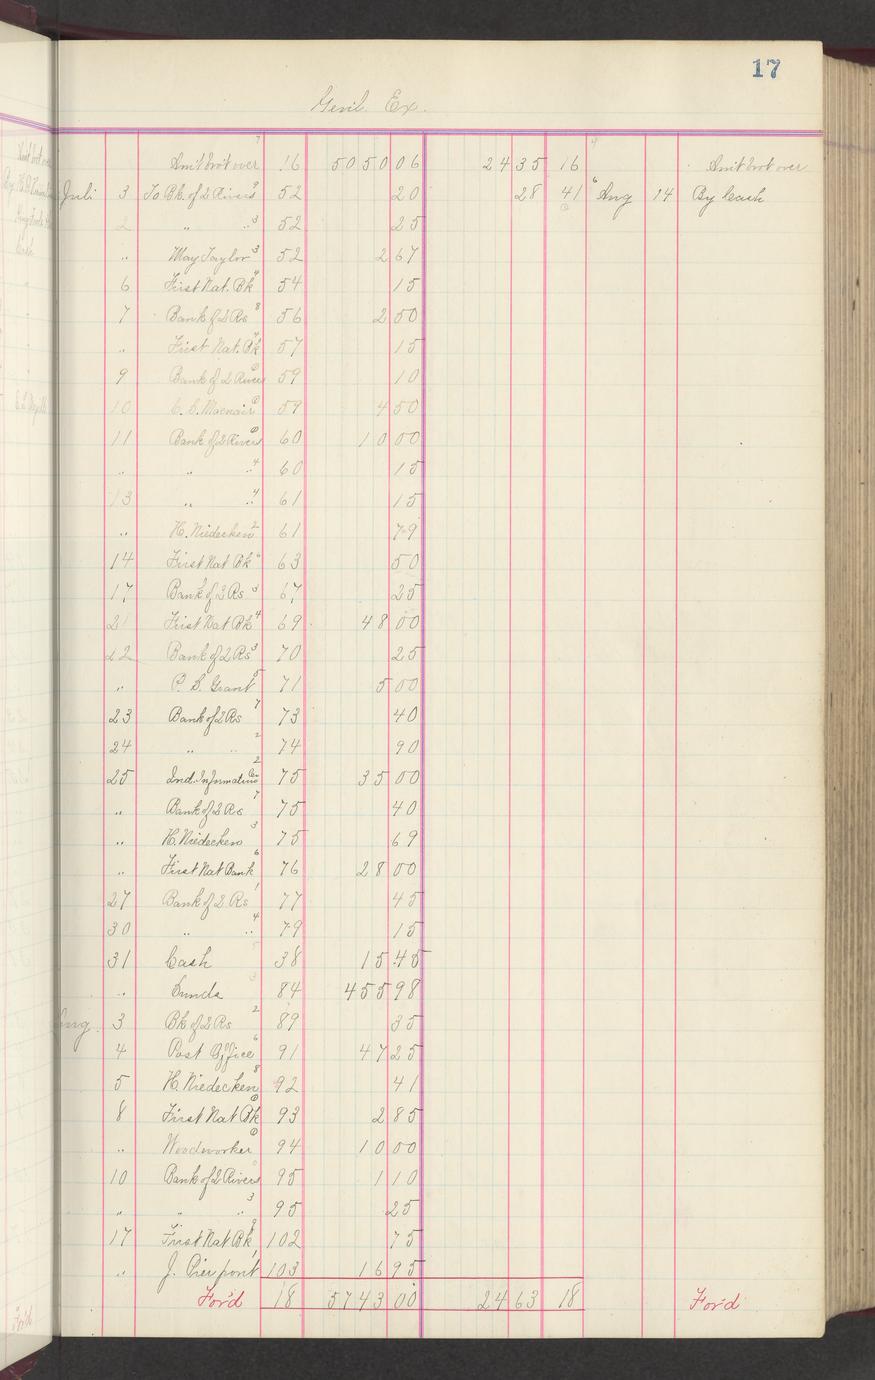 17
Genl. Ex.
Am't brot over 16 5050 06 2435 16 Am't brot over
Juli 3 To Bk. of 2 Rivers 52 20 28 41 Aug 14 By Cash
2 " " 52 25
" May Taylor 52 2 67
6 First Nat. Bk 54 15
7 Bank of 2 Rs 56 2 50
" First Nat. Bk 57 15
9 Bank of 2 Rivers 59 10
10 C. C. Macnair 59 4 50
11 Bank of 2 Rivers 60 10 00
" " " 60 15
13 " " 61 15
" H. Niedecken 61 79
14 First Nat Bk 63 50
17 Bank of 2 Rs 67 25
21 First Nat Bk 69 48 00
22 Bank of 2 Rs 70 25
" P. S. Grant 71 5 00
23 Bank of 2 Rs 73 40
24 " " 74 90
25 Ind. Information Co 75 35 00
" Bank of 2 Rs 75 40
" H. Niedecken 75 69
" First Nat Bank 76 28 00
27 Bank of 2 Rs 77 45
30 " " 79 15
31 Cash 38 15 45
" Sunds 84 455 98
Aug. 3 Bk of 2 Rs 89 35
4 Post Office 91 47 25
5 H. Niedecken 92 41
8 First Nat Bk 93 2 85
" Woodworker 94 10 00
10 Bank of 2 Rivers 95 1 10
" " " 95 25
17 First Nat Bk 102 75
" J. Pierpont 103 16 95
For'd 18 5743 00 2463 18 For'd